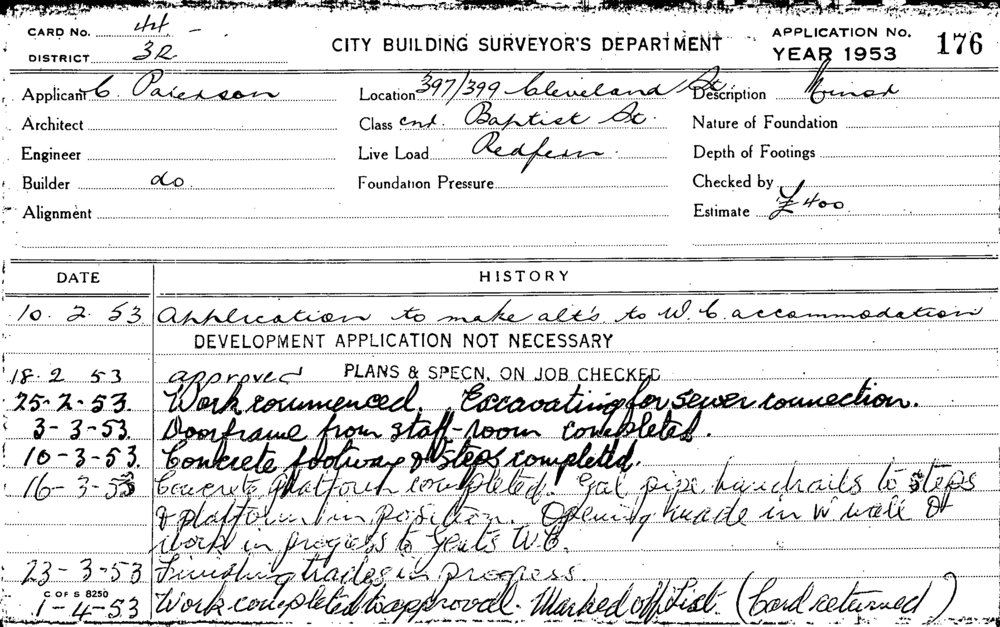 CARD No. 44
DISTRICT 3R
CITY BUILDING SURVEYOR'S DEPARTMENT
APPLICATION No.
YEAR 1953
176
Applicant C. Paterson
Location 397/399 Cleveland St.
Description Minor
Architect
Class cnr. Baptist St.
Nature of Foundation
Engineer
Live Load Redfern.
Depth of Footings
Builder do
Foundation Pressure
Checked by
Alignment
Estimate £400
DATE
HISTORY
10. 2. 53 Application to make alt's to W.C. accommodation
DEVELOPMENT APPLICATION NOT NECESSARY
18. 2 53 approved PLANS & SPECN. ON JOB CHECKED
25-2-53. Work commenced. Excavating for sewer connection.
3-3-53. Doorframe from staff-room completed.
10-3-53. Concrete footway & steps completed.
16-3-53 Concrete platform completed. Gal pipe handrails to steps
& platform in position. Opening made in W wall &
work in progress to Gents W.C.
23-3-53 Finishing trades in progress.
C OF S 8250
1-4-53 Work completed to approval. Marked off List. (Card returned)